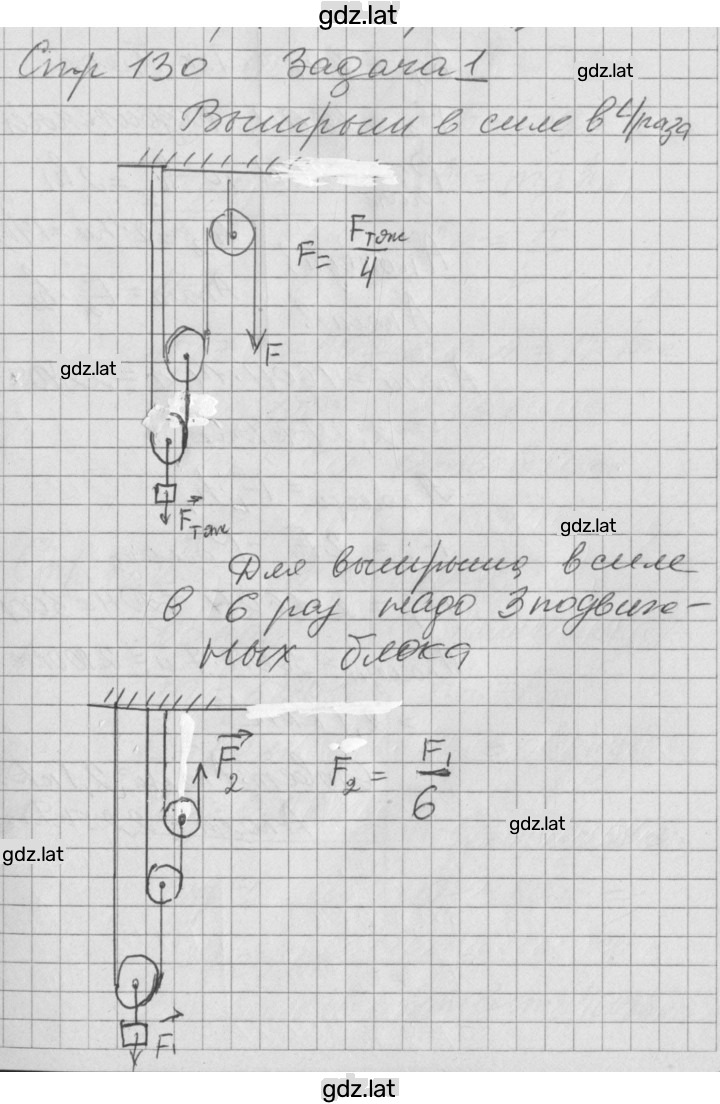 gdz.lat
Стр 130 Задача 1
gdz.lat
Выигрыш в силе в 4 раза
F = Fтяж / 4
F
gdz.lat
Fтяж
gdz.lat
Для выигрыша в силе
в 6 раз надо 3 подвиж-
ных блока
F₂
F₂ = F₁ / 6
gdz.lat
gdz.lat
F₁
gdz.lat